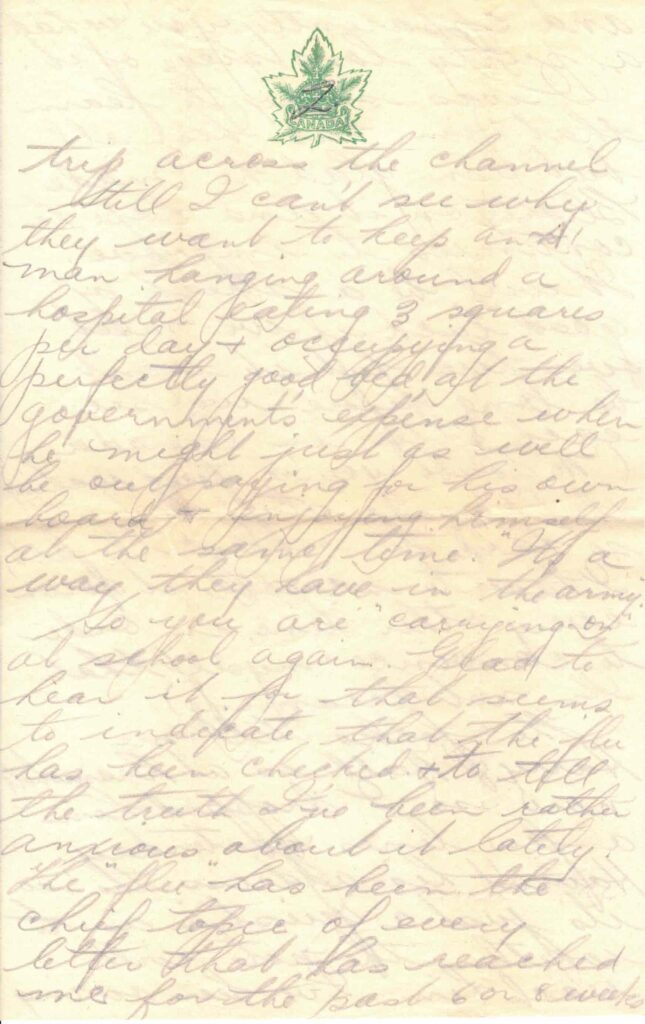 2
CANADA
trip across the channel
Still I can't see why
they want to keep an A1
man hanging around a
hospital eating 3 squares
per day + occupying a
perfectly good bed, at the
government's expense when
he might just as well
be out paying for his own
board + enjoying himself
at the same time. "It's a
way they have in the army.
So you are "carrying-on"
at school again. Glad to
hear it for that seems
to indicate that the flu
has been checked + to tell
the truth I've been rather
anxious about it lately.
The "flu" has been the
chief topic of every
letter that has reached
me for the past 6 or 8 weeks